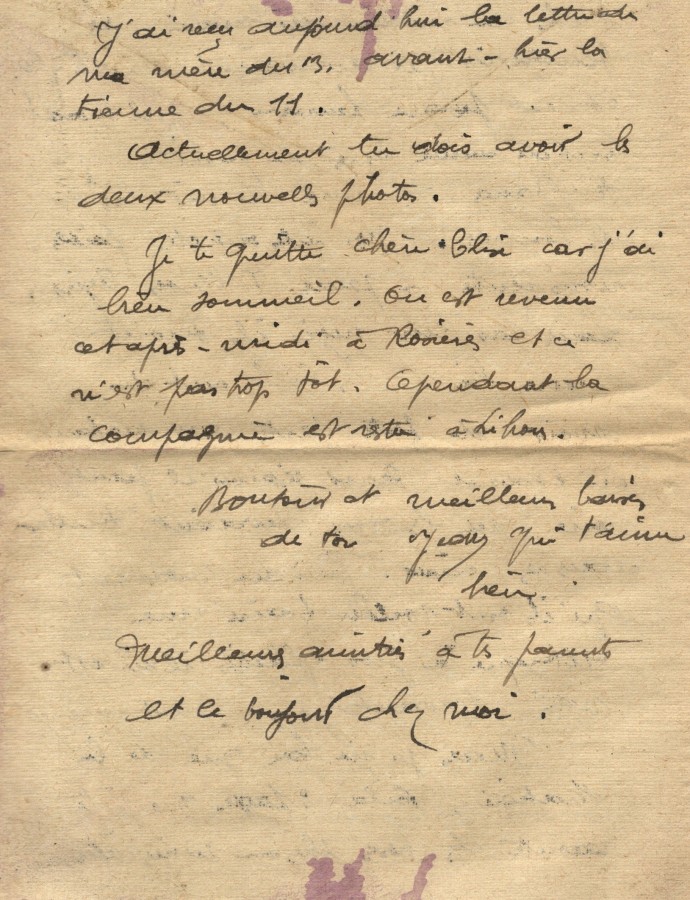 J'ai reçu aujourd'hui la lettre de
ma mère du 13. avant-hier la
tienne du 11.
Actuellement tu dois avoir les
deux nouvelles photos.
Je te quitte chère car j'ai
bien sommeil. On est revenu
cet après-midi à Rosières et ce
n'est pas trop tôt. Cependant la
compagnie est restée à Lihons.
Bonsoir et meilleurs baisers
de ton qui t'aime
bien.
Meilleures amitiés à tes parents
et le bonjour chez moi.